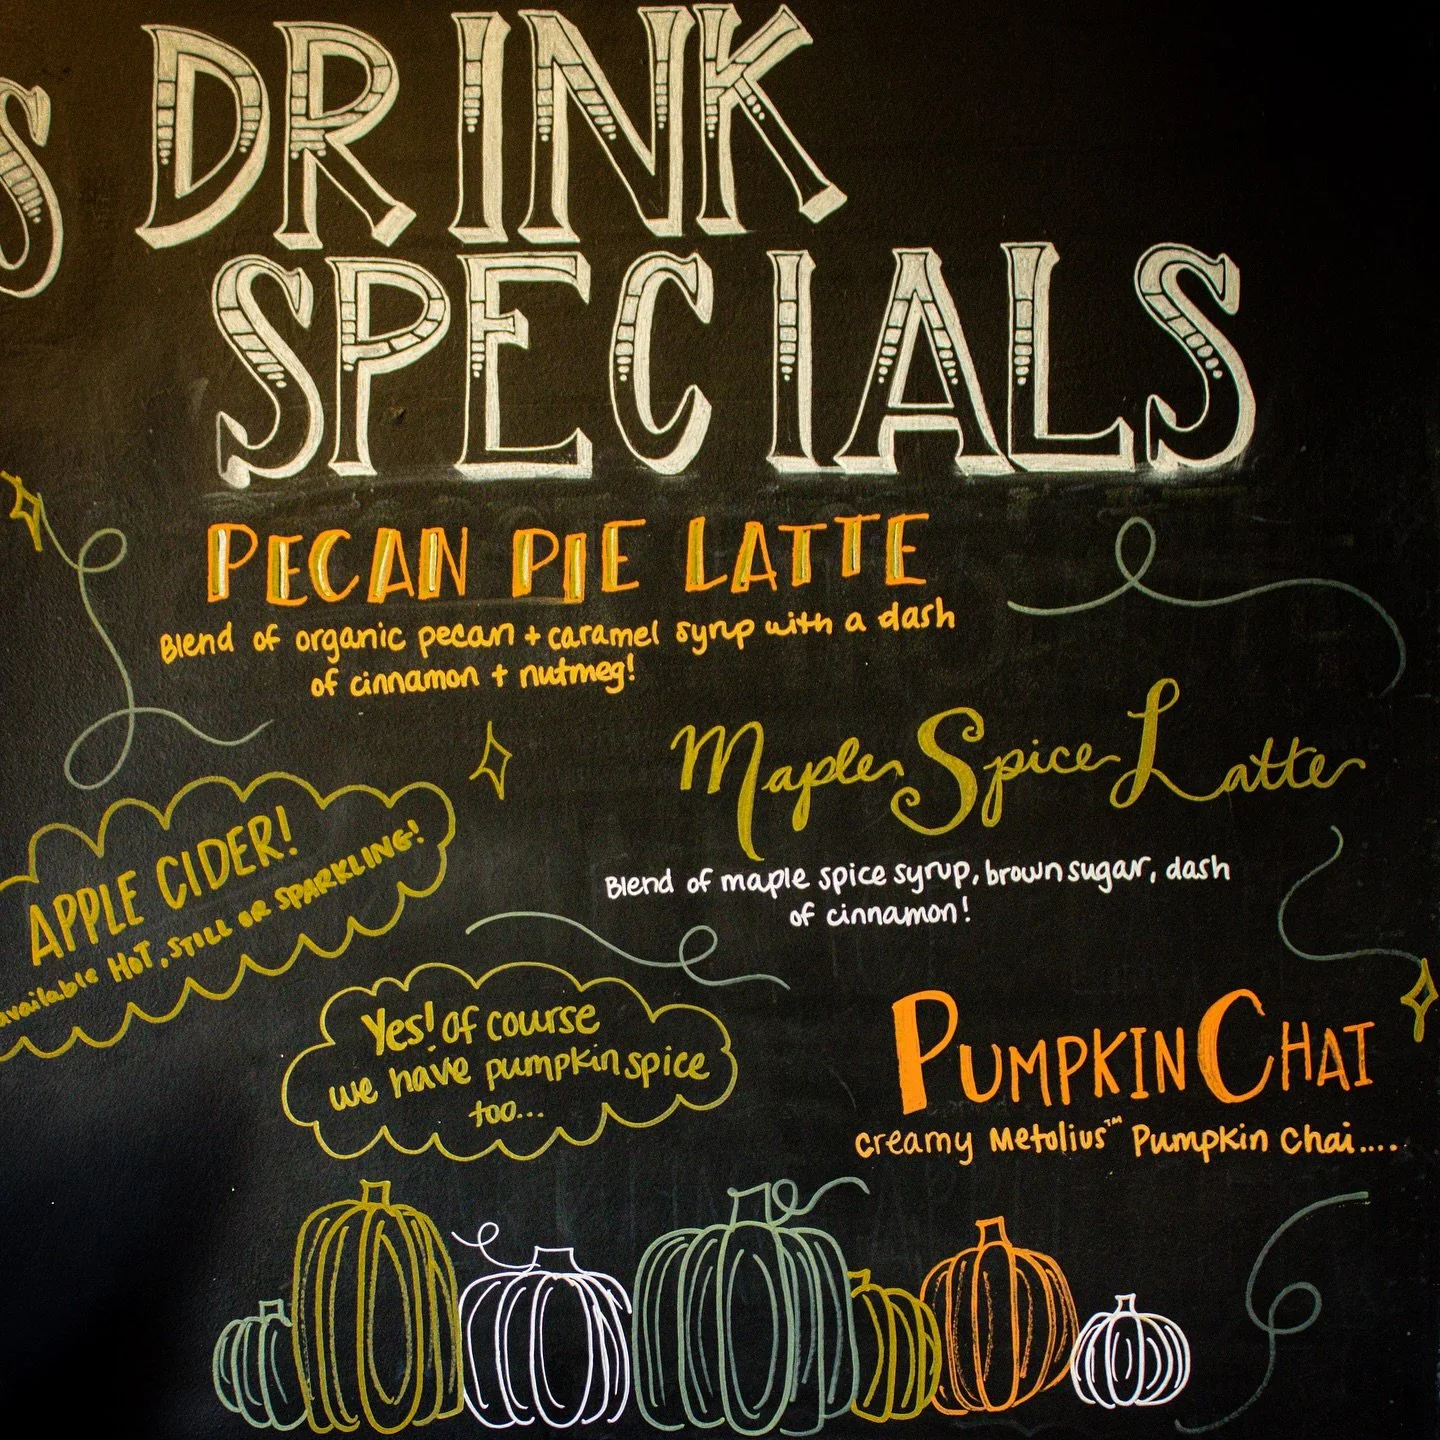 DRINK
SPECIALS
PECAN PIE LATTE
Blend of organic pecan + caramel syrup with a dash
of cinnamon + nutmeg!
Maple Spice Latte
Blend of maple spice syrup, brown sugar, dash
of cinnamon!
APPLE CIDER!
available HOT, STILL OR SPARKLING!
Yes! of course
we have pumpkin spice
too...
PUMPKIN CHAI
creamy Metolius™ Pumpkin Chai....